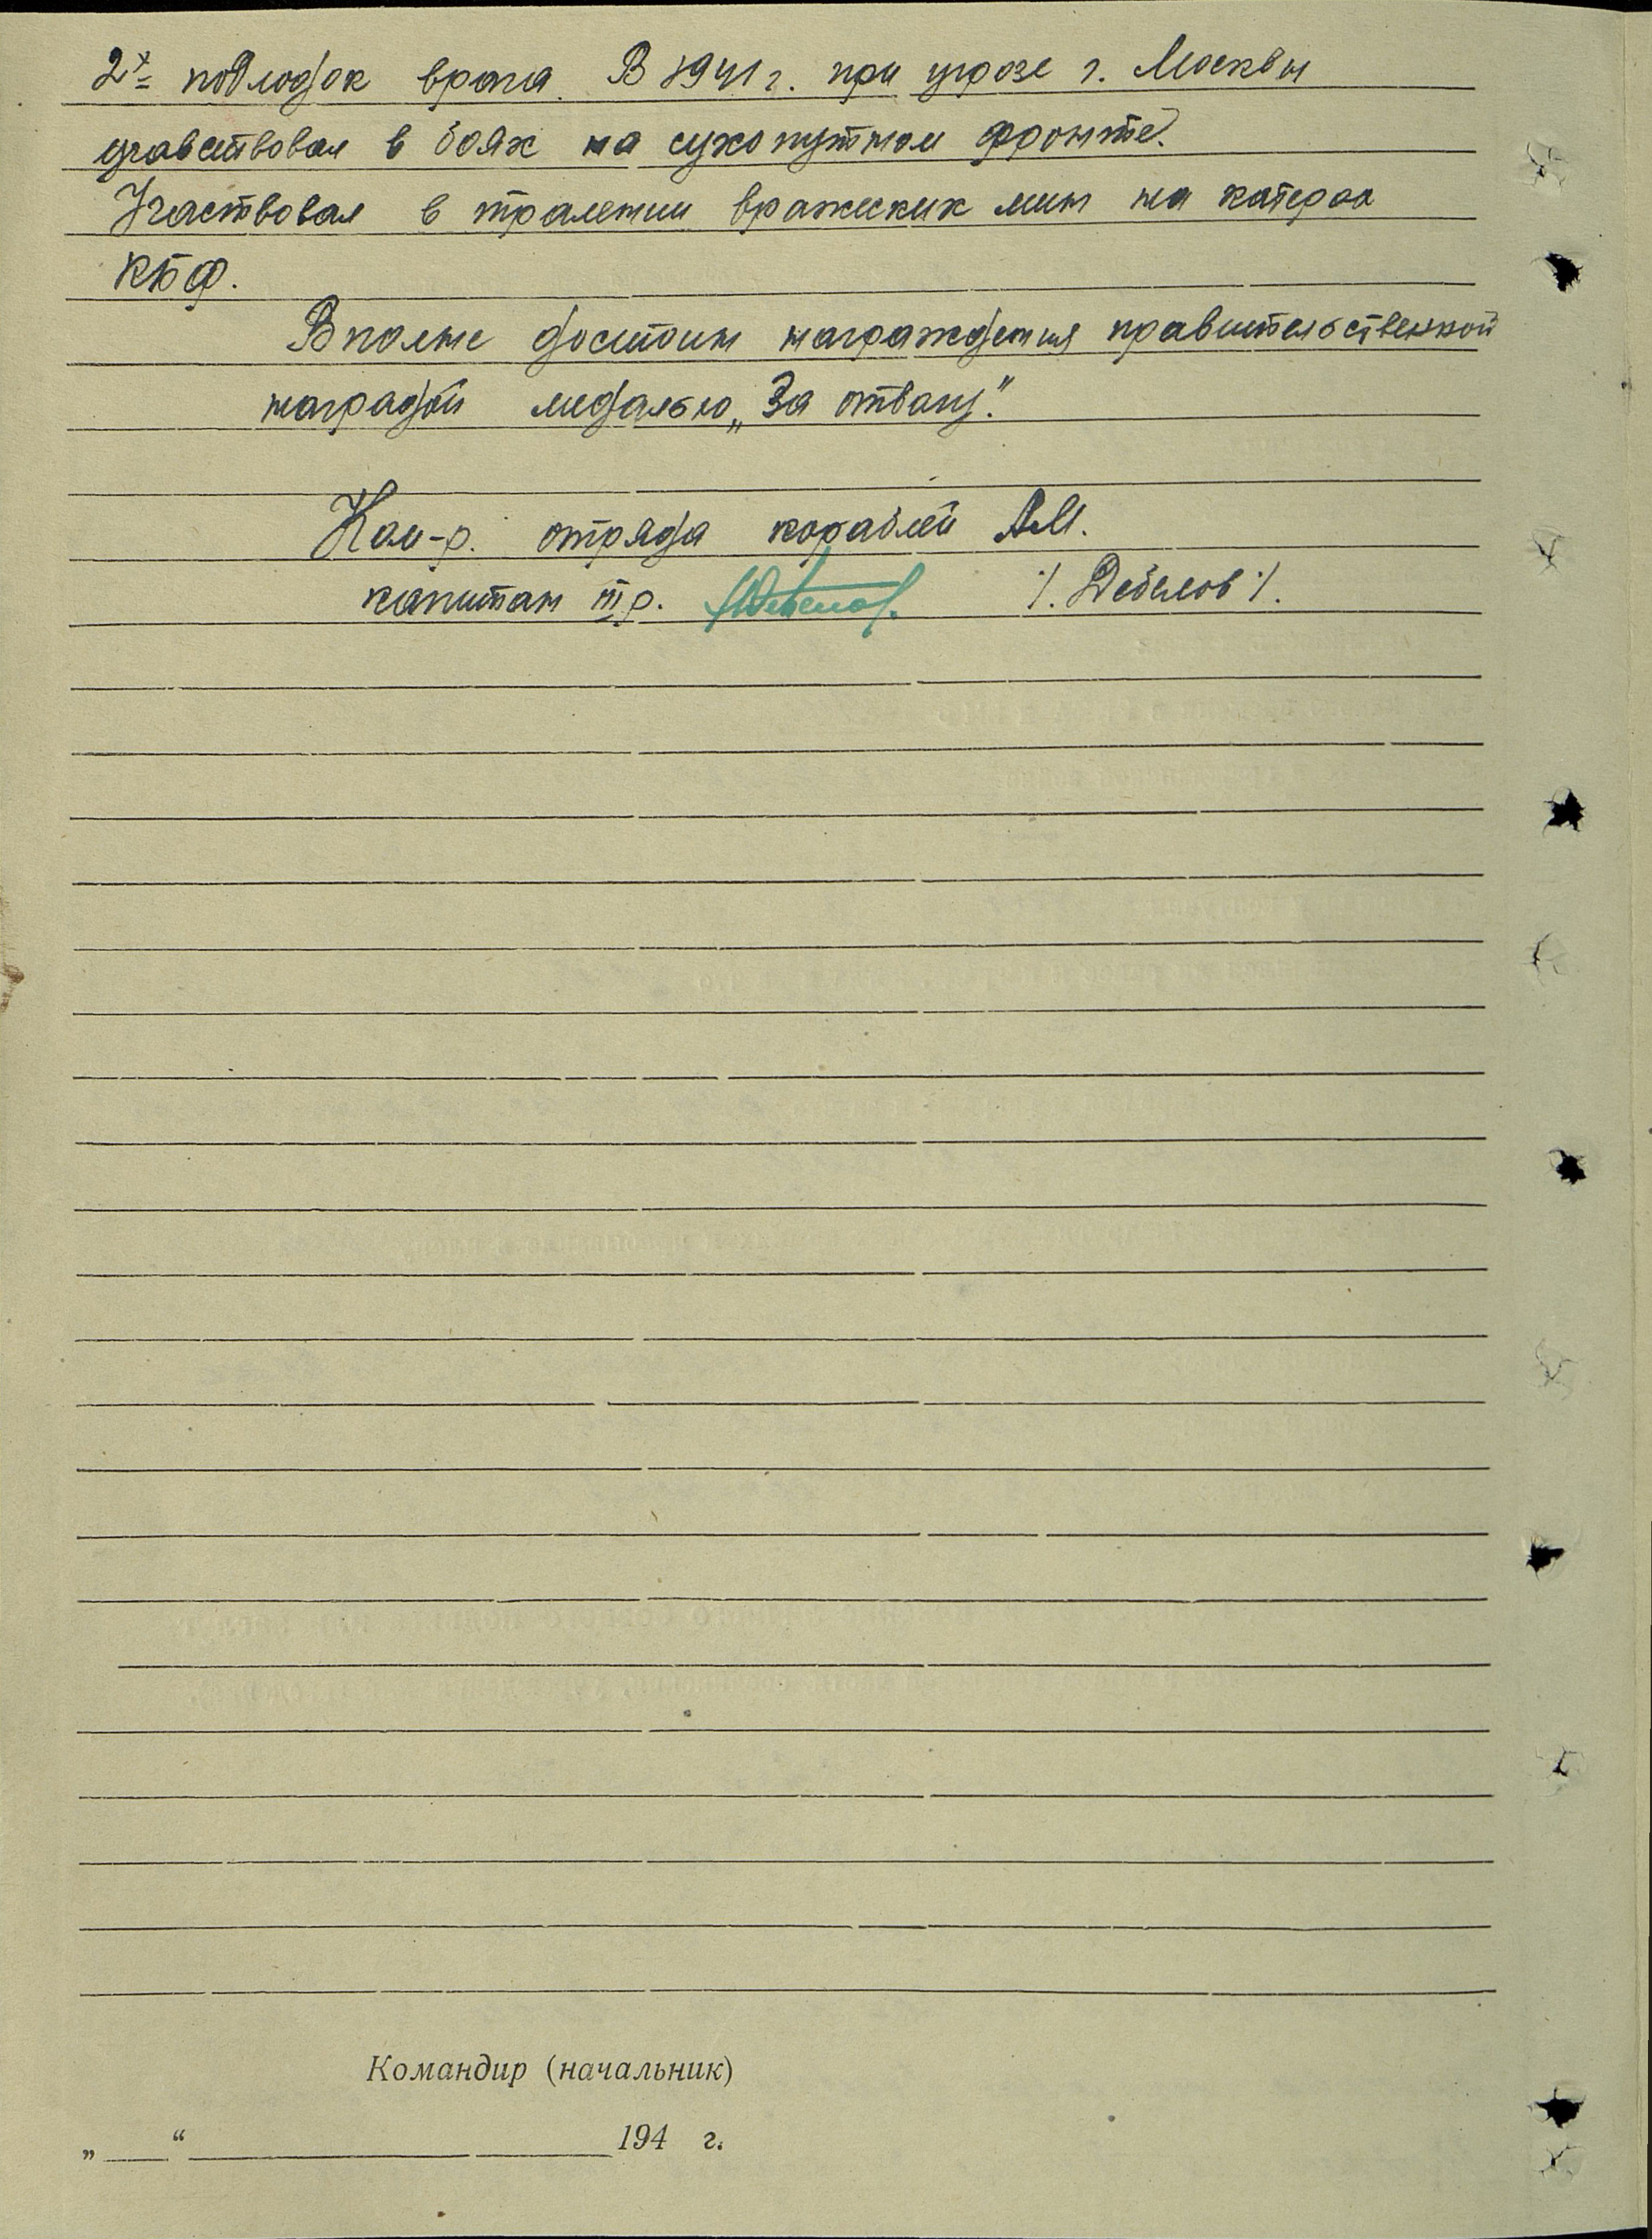 2х подлодок врага. В 1941 г. при угрозе г. Москвы
учавствовал в боях на сухопутном фронте.
Участвовал в тралении вражеских мин на катерах
КБФ.
Вполне достоин награждения правительственной
наградой медалью „За отвагу".
Ком-р. отряда кораблей АМ.
капитан III р. /Дебелов/.
Командир (начальник)
„ “ 194 г.